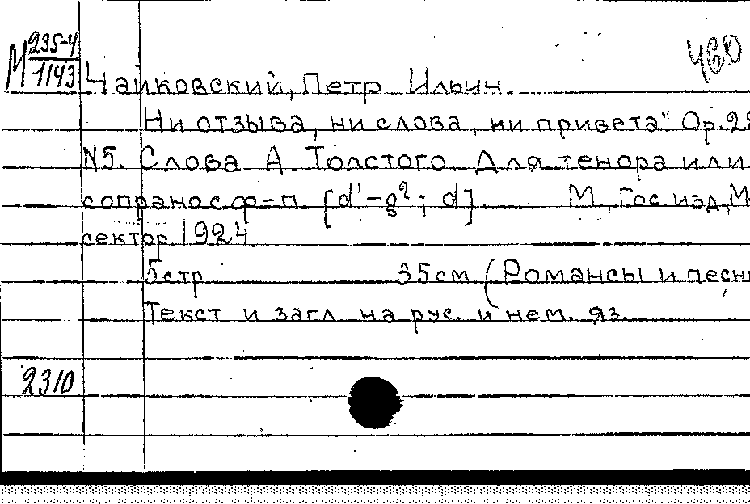 М 235-4
1143
460
Чайковский, Петр Ильич.
Ни отзыва, ни слова, ни привета". Op. 28
N5. Слова А Толстого. Для тенора или
сопрано с ф-п. [d'-g²; d] М, Гос. изд, М
сектор. 1924
5 стр 35 см (Романсы и песни
Текст и загл на рус. и нем. яз.
2310